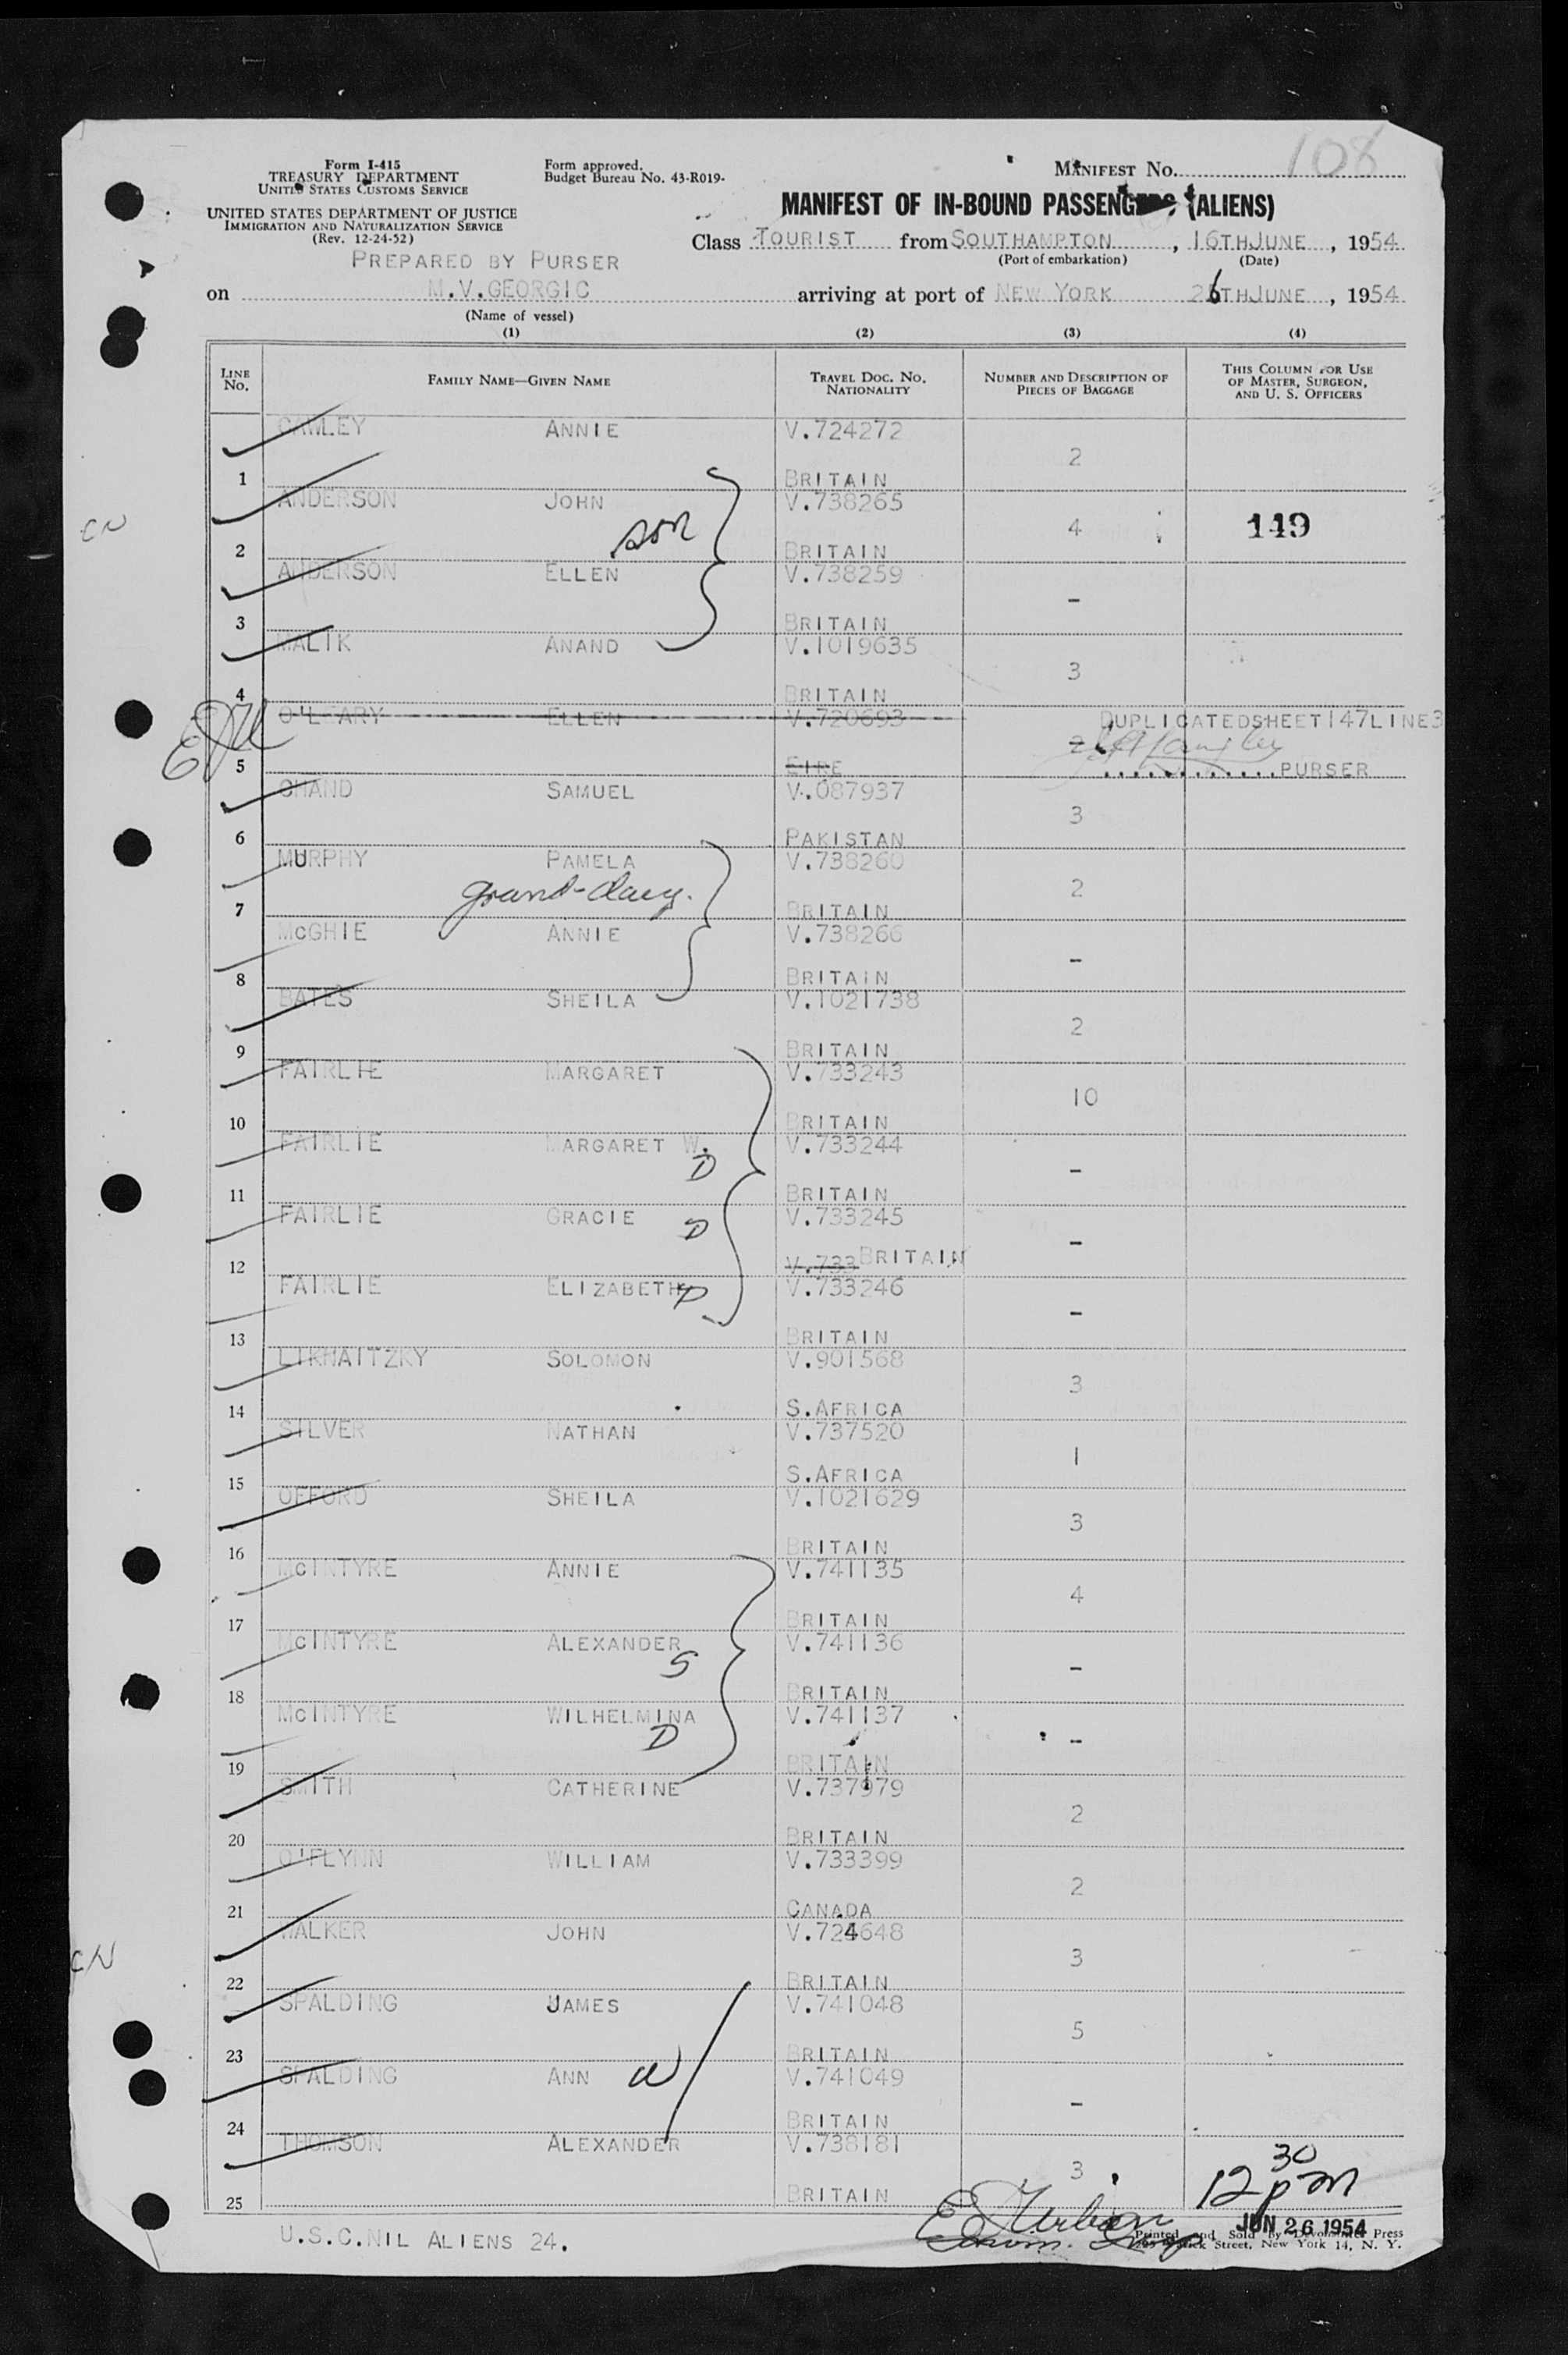 108
Form I-415
TREASURY DEPARTMENT
UNITED STATES CUSTOMS SERVICE
Form approved.
Budget Bureau No. 43-R019-
MANIFEST No.
UNITED STATES DEPARTMENT OF JUSTICE
IMMIGRATION AND NATURALIZATION SERVICE
(Rev. 12-24-52)
MANIFEST OF IN-BOUND PASSENGERS (ALIENS)
Class TOURIST from SOUTHAMPTON, 16TH JUNE, 1954
(Port of embarkation) (Date)
PREPARED BY PURSER
on M.V.GEORGIC arriving at port of NEW YORK 26TH JUNE, 1954
(Name of vessel)
(1) (2) (3) (4)
LINE No. FAMILY NAME—GIVEN NAME TRAVEL DOC. No. NATIONALITY NUMBER AND DESCRIPTION OF PIECES OF BAGGAGE THIS COLUMN FOR USE OF MASTER, SURGEON, AND U. S. OFFICERS
ANNIE V.724272
2
1 BRITAIN
ANDERSON JOHN V.738265
CN son 4 149
2 BRITAIN
ANDERSON ELLEN V.738259
-
3 BRITAIN
MALIK ANAND V.1019635
3
4 BRITAIN
O'LEARY ELLEN V.720693 DUPLICATEDSHEET147LINE3
2
5 EIRE ............PURSER
CHAND SAMUEL V.087937
3
6 PAKISTAN
MURPHY PAMELA V.738260
grand-daug. 2
7 BRITAIN
McGHIE ANNIE V.738266
-
8 BRITAIN
BATES SHEILA V.1021738
2
9 BRITAIN
FAIRLIE MARGARET V.733243
10
10 BRITAIN
FAIRLIE MARGARET W. V.733244
D -
11 BRITAIN
FAIRLIE GRACIE D V.733245
-
12 V.733 BRITAIN
FAIRLIE ELIZABETH D V.733246
-
13 BRITAIN
LIKNAITZKY SOLOMON V.901568
3
14 S.AFRICA
SILVER NATHAN V.737520
1
15 S.AFRICA
OFFORD SHEILA V.1021629
3
16 BRITAIN
McINTYRE ANNIE V.741135
4
17 BRITAIN
McINTYRE ALEXANDER V.741136
S -
18 BRITAIN
McINTYRE WILHELMINA V.741137
D -
19 BRITAIN
SMITH CATHERINE V.737979
2
20 BRITAIN
O'FLYNN WILLIAM V.733399
2
21 CANADA
WALKER JOHN V.724648
CN 3
22 BRITAIN
SPALDING JAMES V.741048
5
23 BRITAIN
SPALDING ANN W V.741049
-
24 BRITAIN
THOMSON ALEXANDER V.738181
3 12 30 pm
25 BRITAIN
U.S.C.NIL ALIENS 24.
JUN 26 1954
Printed and Sold by Devonshire Press
Street, New York 14, N. Y.